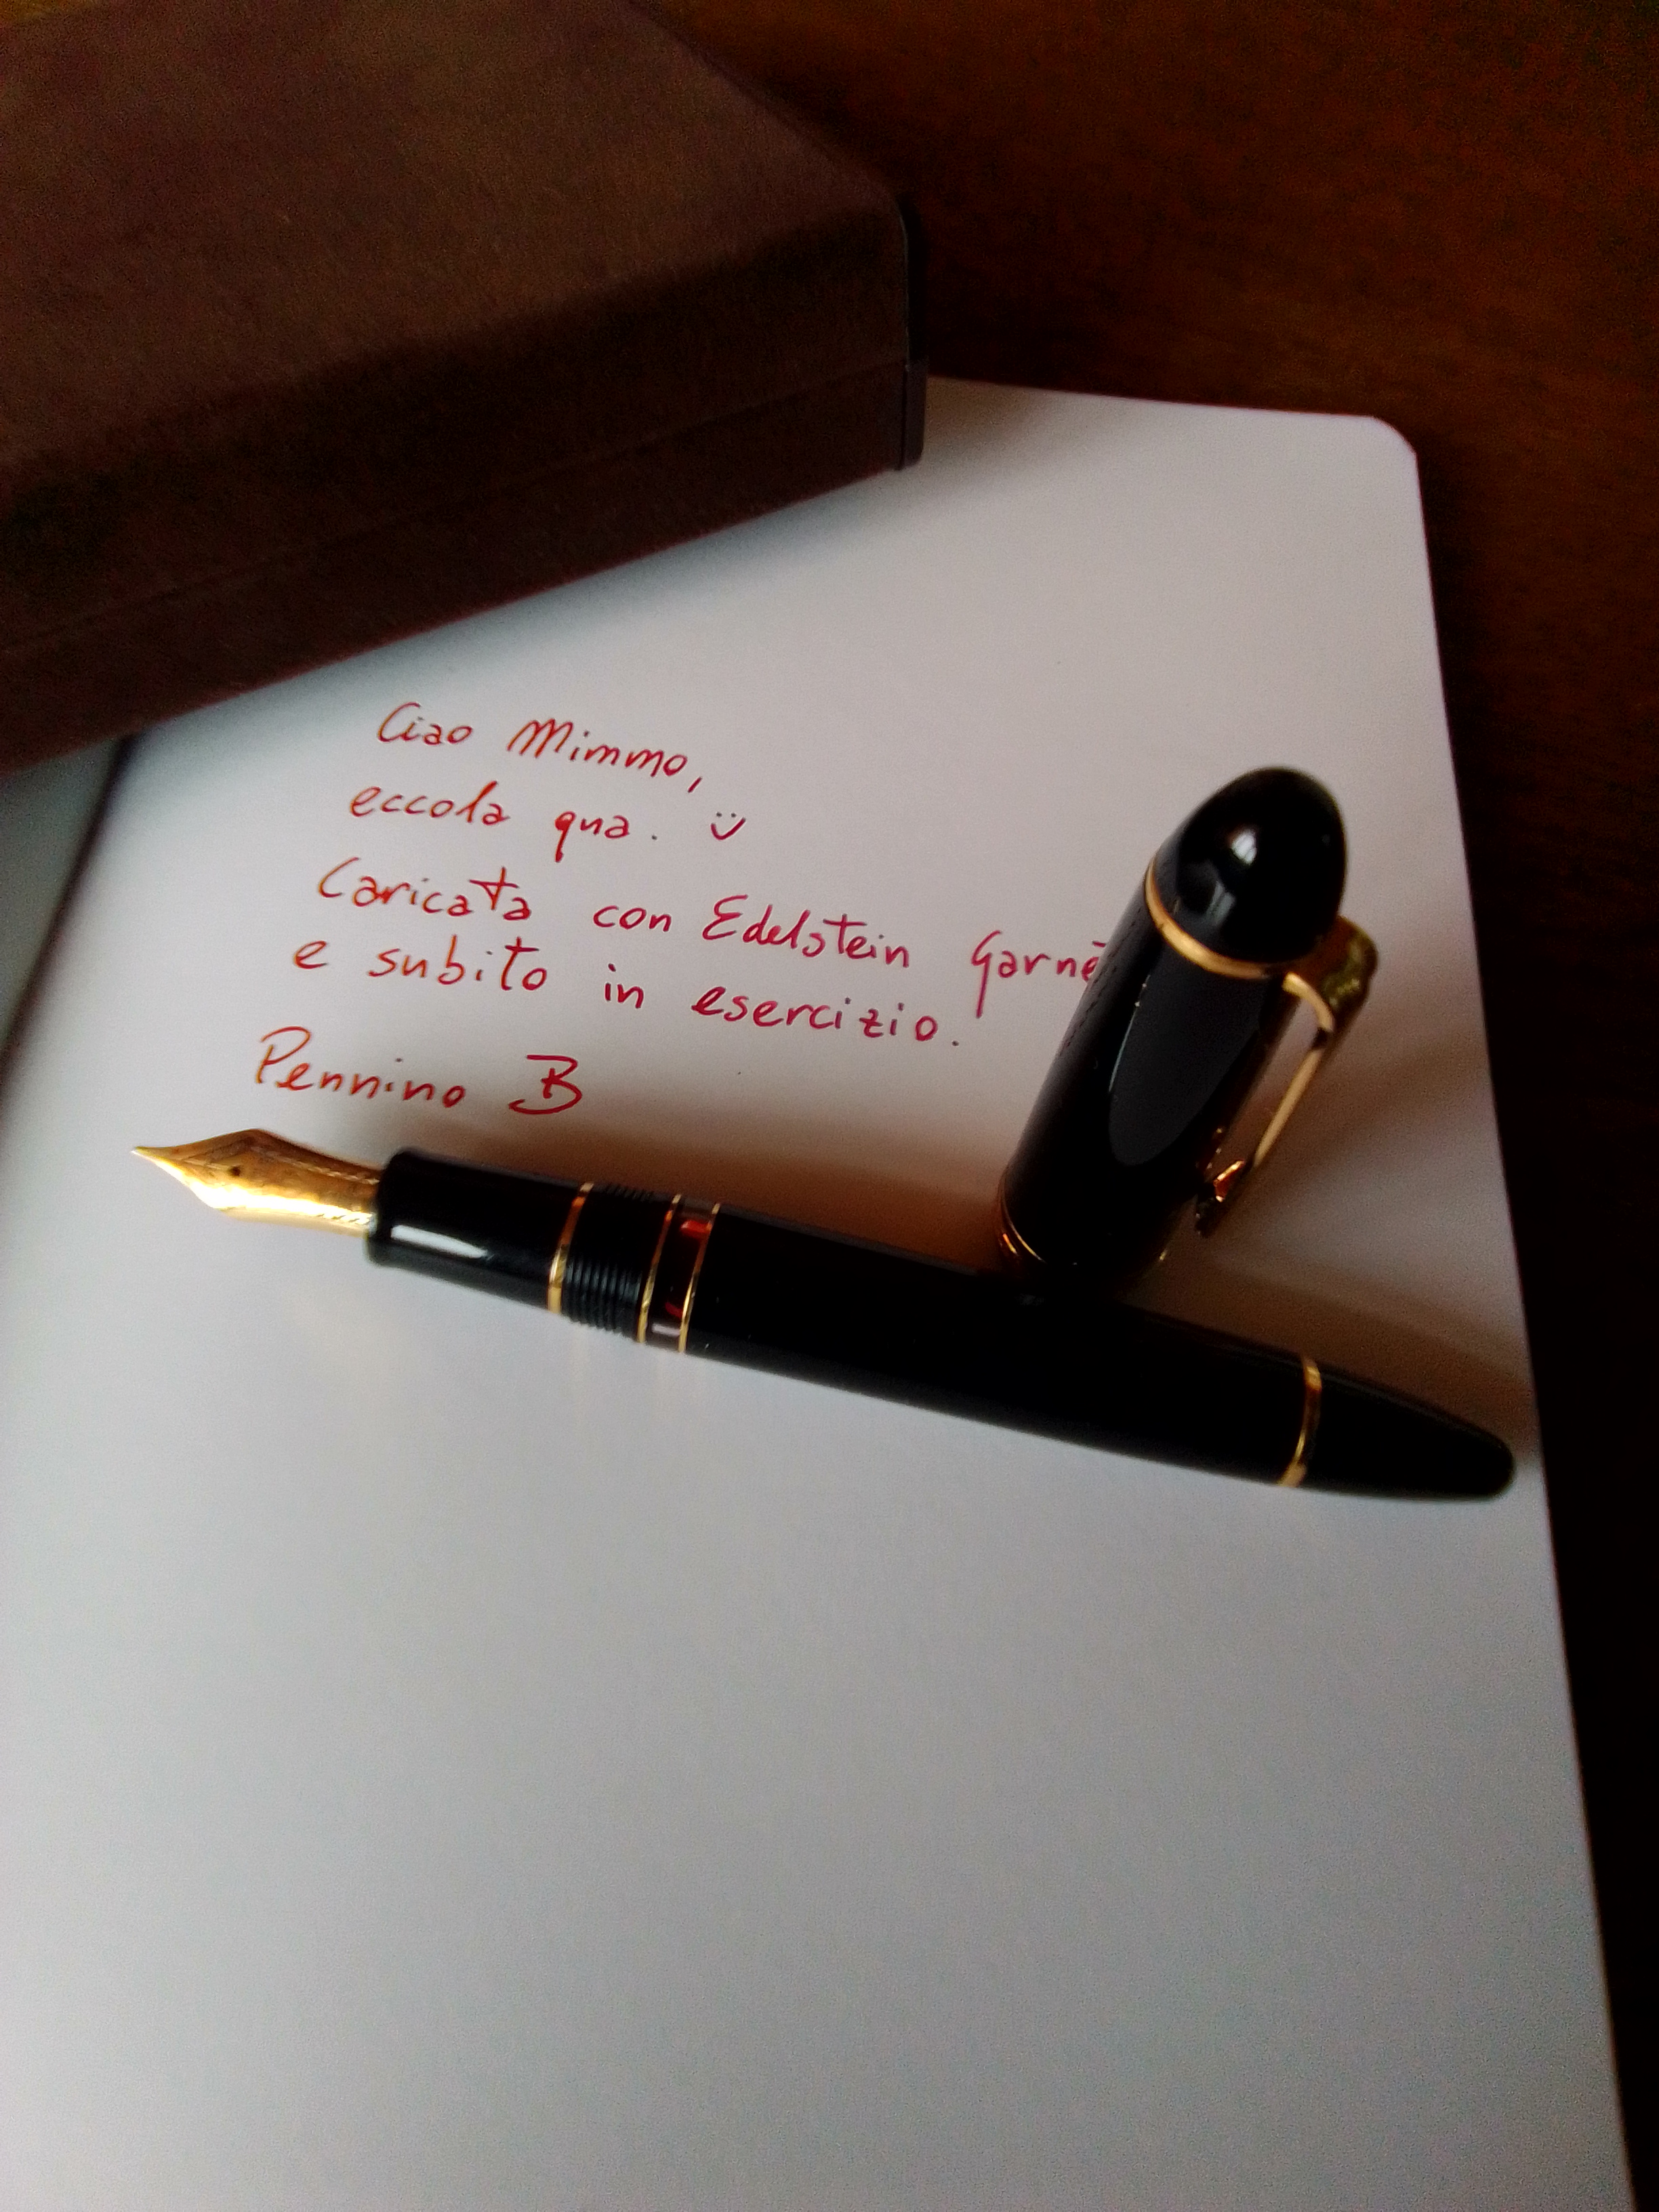 Ciao Mimmo,
eccola qua. ಀ
Caricata con Edelstein
e subito in esercizio.
Pennino B